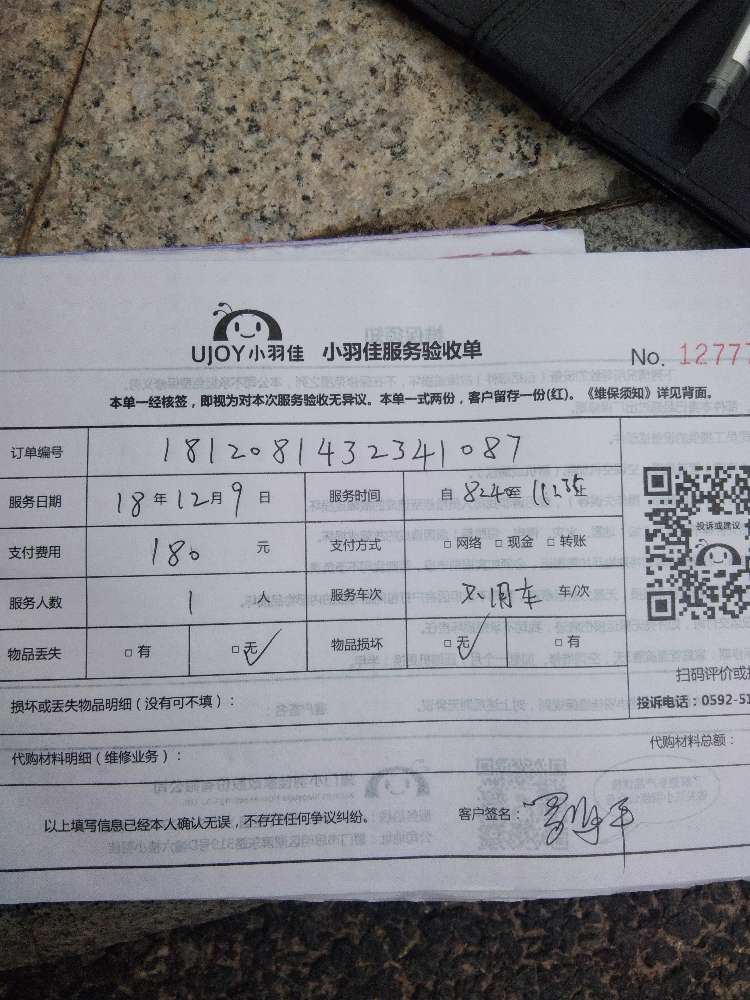 UJOY小羽佳 小羽佳服务验收单
No. 12777
本单一经核签，即视为对本次服务验收无异议。本单一式两份，客户留存一份(红)。《维保须知》详见背面。
订单编号 181208143234 1087
服务日期 18 年 12 月 9 日 服务时间 自 824 至 1123 止
支付费用 180 元 支付方式 □ 网络 □ 现金 □ 转账
投诉或建议
服务人数 1 人 服务车次 不用车 车/次
物品丢失 □ 有 □ 无 物品损坏 □ 无 □ 有
扫码评价或
损坏或丢失物品明细（没有可不填）：
投诉电话：0592-51
代购材料明细（维修业务）：
代购材料总额：
以上填写信息已经本人确认无误，不存在任何争议纠纷。 客户签名：